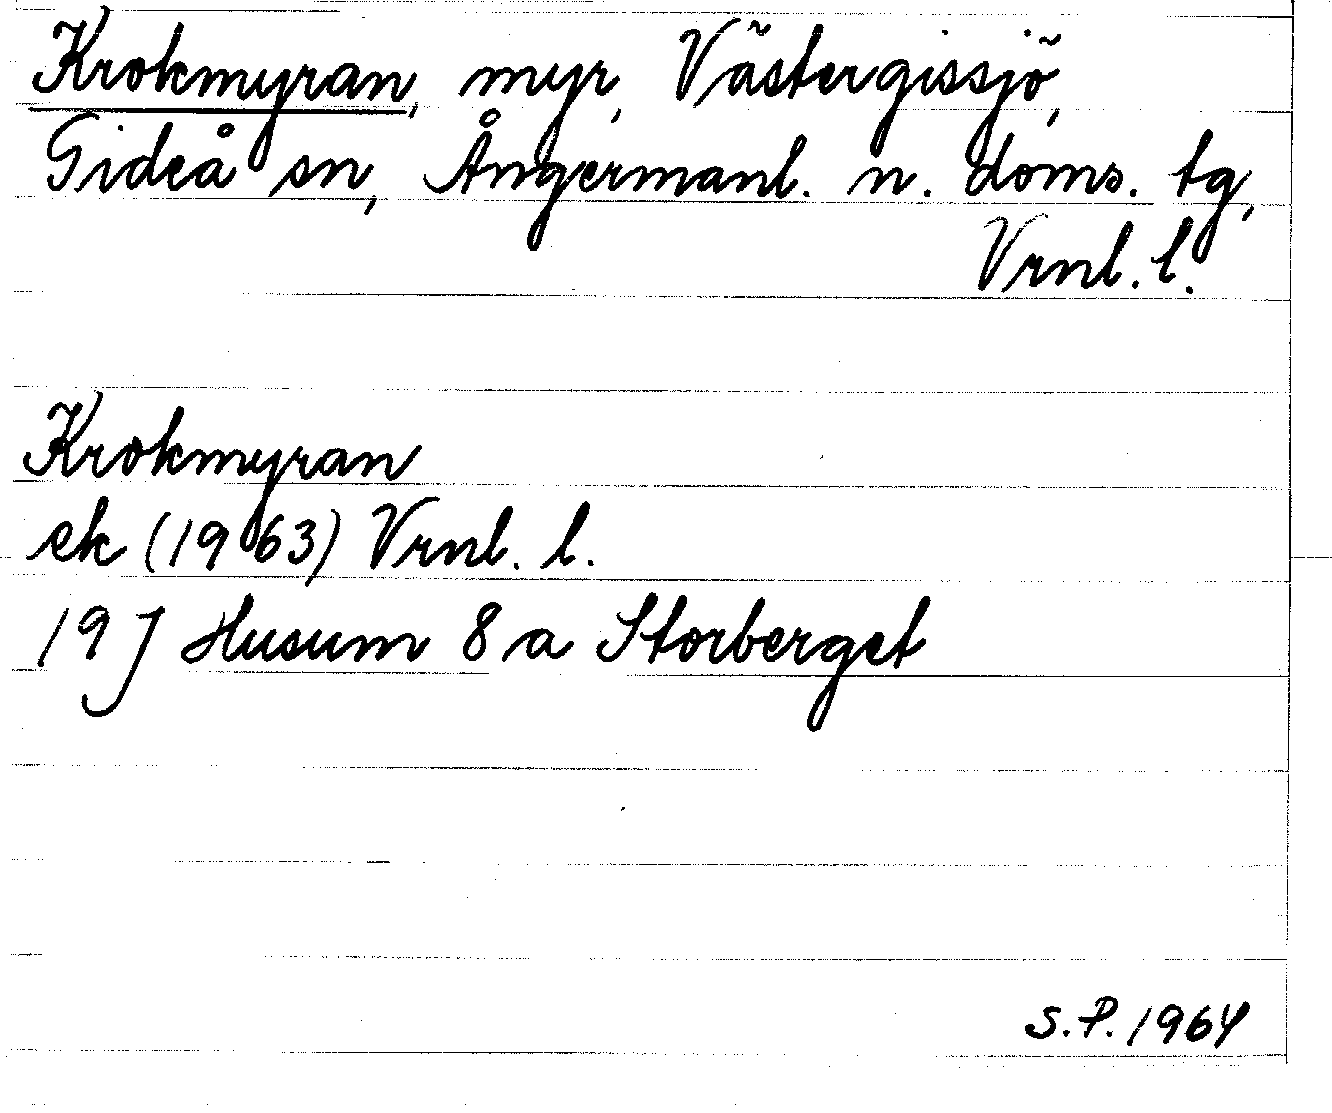 Krokmyran, myr, Västergissjö,
Gideå sn, Ångermanl. n. doms. tg,
Vrnl. l.
Krokmyran
ek (1963) Vrnl. l.
19 J Husum 8 a Storberget
S.P. 1964